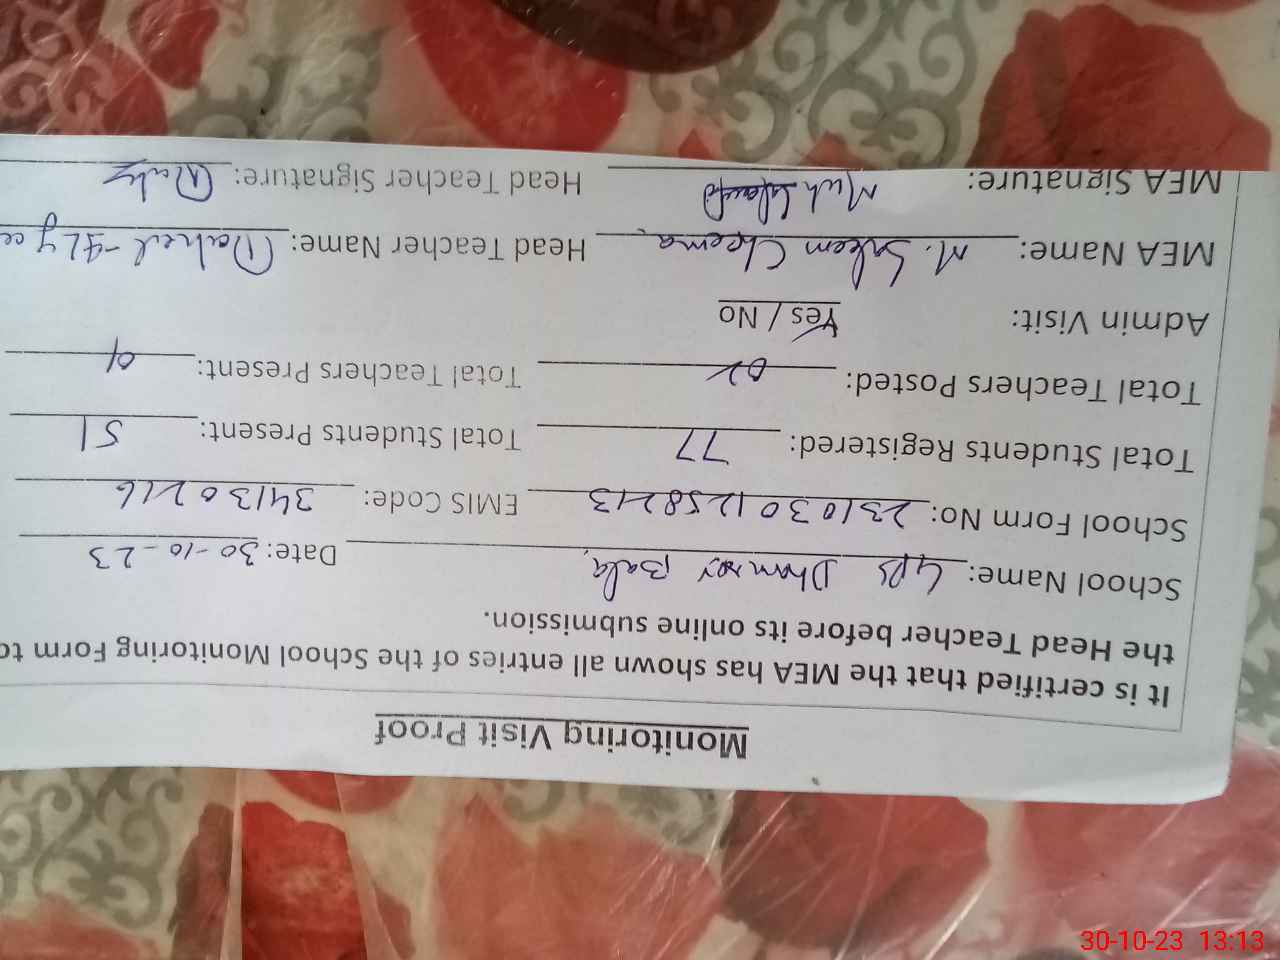 Monitoring Visit Proof
It is certified that the MEA has shown all entries of the School Monitoring Form to
the Head Teacher before its online submission.
School Name: GPS Dhamray Bala Date: 30-10-23
School Form No: 2310301258213 EMIS Code: 34130216
Total Students Registered: 77 Total Students Present: 51
Total Teachers Posted: 02 Total Teachers Present:
Admin Visit: Yes / No
MEA Name: M. Saleem Cheema Head Teacher Name:
MEA Signature: Head Teacher Signature:
30-10-23 13:13